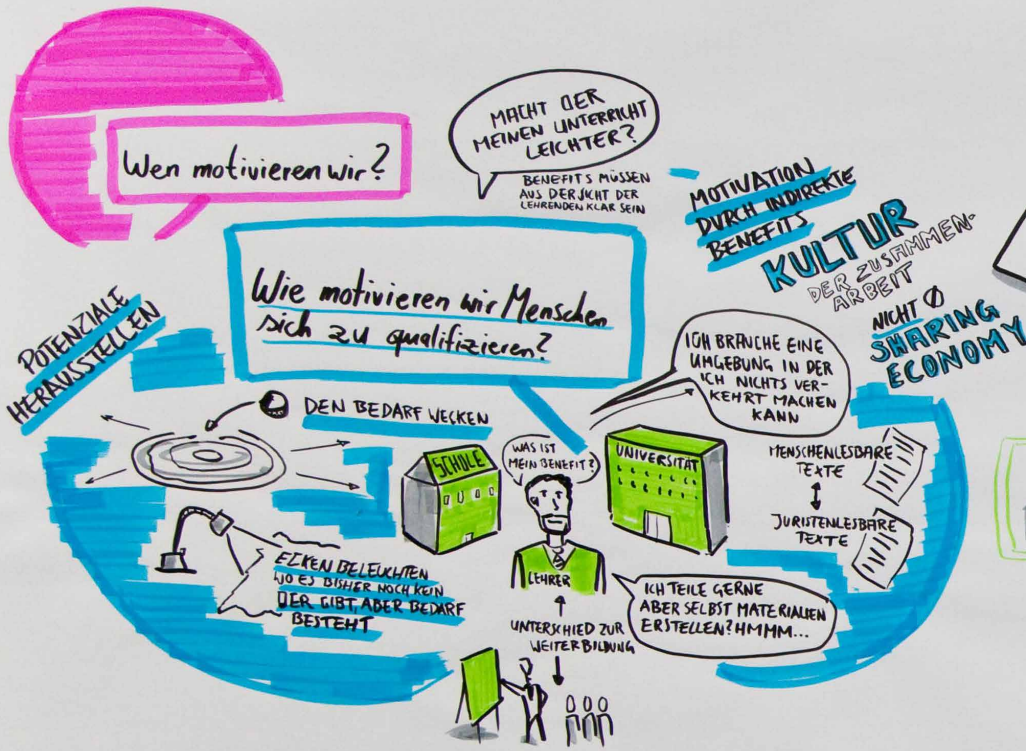 Wen motivieren wir?
MACHT DER
MEINEN UNTERRICHT
LEICHTER?
BENEFITS MÜSSEN
AUS DER SICHT DER
LEHRENDEN KLAR SEIN
MOTIVATION
DURCH INDIREKTE
BENEFITS
KULTUR
DER ZUSAMMEN-
ARBEIT
NICHT Ø
SHARING
ECONOMY
Wie motivieren wir Menschen
sich zu qualifizieren?
POTENZIALE
HERAUSSTELLEN
DEN BEDARF WECKEN
ICH BRAUCHE EINE
UMGEBUNG IN DER
ICH NICHTS VER-
KEHRT MACHEN
KANN
SCHULE
WAS IST
MEIN BENEFIT?
UNIVERSITÄT
LEHRER
MENSCHENLESBARE
TEXTE
JURISTENLESBARE
TEXTE
ECKEN BELEUCHTEN
WO ES BISHER NOCH KEIN
OER GIBT, ABER BEDARF
BESTEHT
ICH TEILE GERNE
ABER SELBST MATERIALIEN
ERSTELLEN? HMMM...
UNTERSCHIED ZUR
WEITERBILDUNG